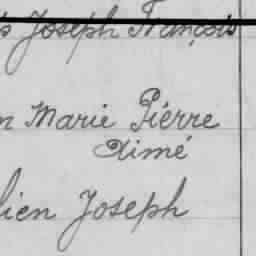 s Joseph François
n Marie Piérre
Aimé
lien Joseph